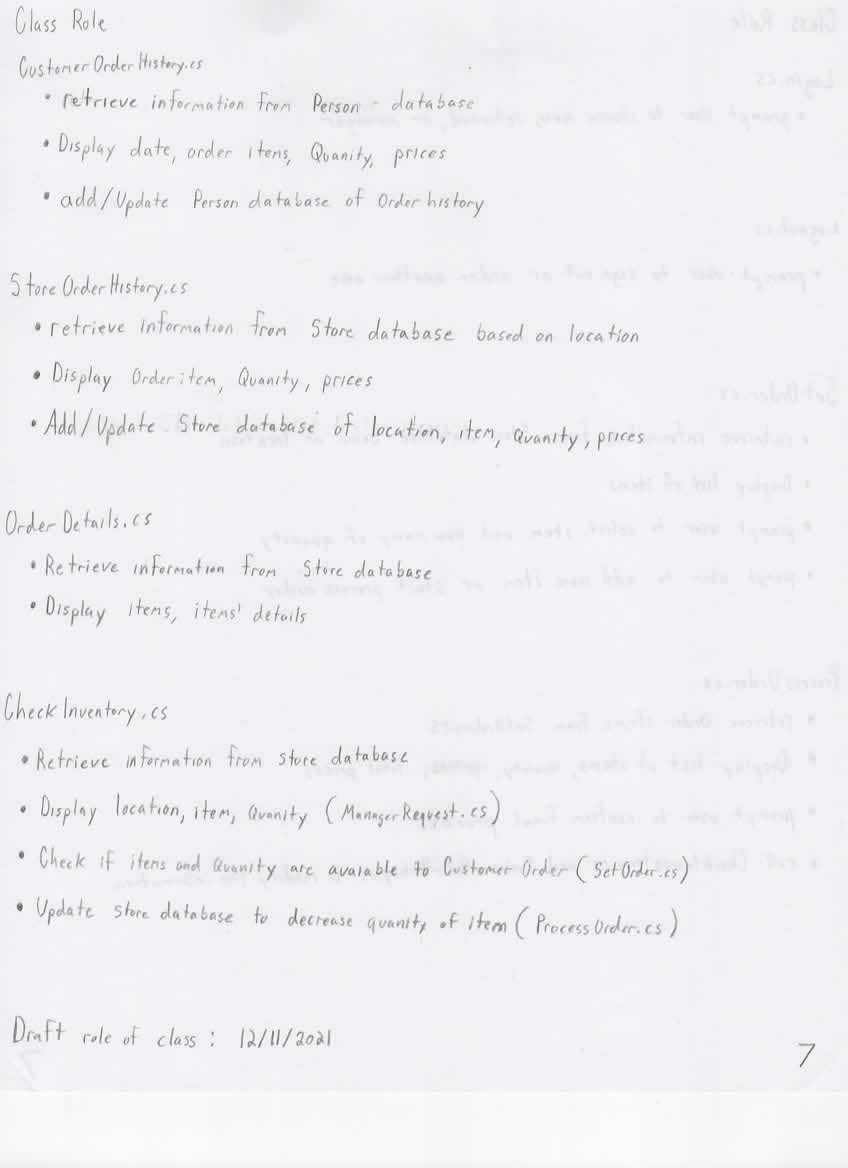 Class Role
CustomerOrderHistory.cs
• retrieve information from Person - database
• Display date, order itens, Quanity, prices
• add/Update Person database of Order history
StoreOrderHistory.cs
• retrieve information from Store database based on location
• Display Order item, Quanity, prices
• Add/Update Store database of location, item, Quanity, prices
Order Details.cs
• Retrieve information from Store database
• Display items, items' details
CheckInventory.cs
• Retrieve information from store database
• Display location, item, Quanity (ManagerRequest.cs)
• Check if items and Quanity are avaiable to Customer Order (SetOrder.cs)
• Update store database to decrease quanity of item (ProcessOrder.cs)
Draft role of class: 12/11/2021
7